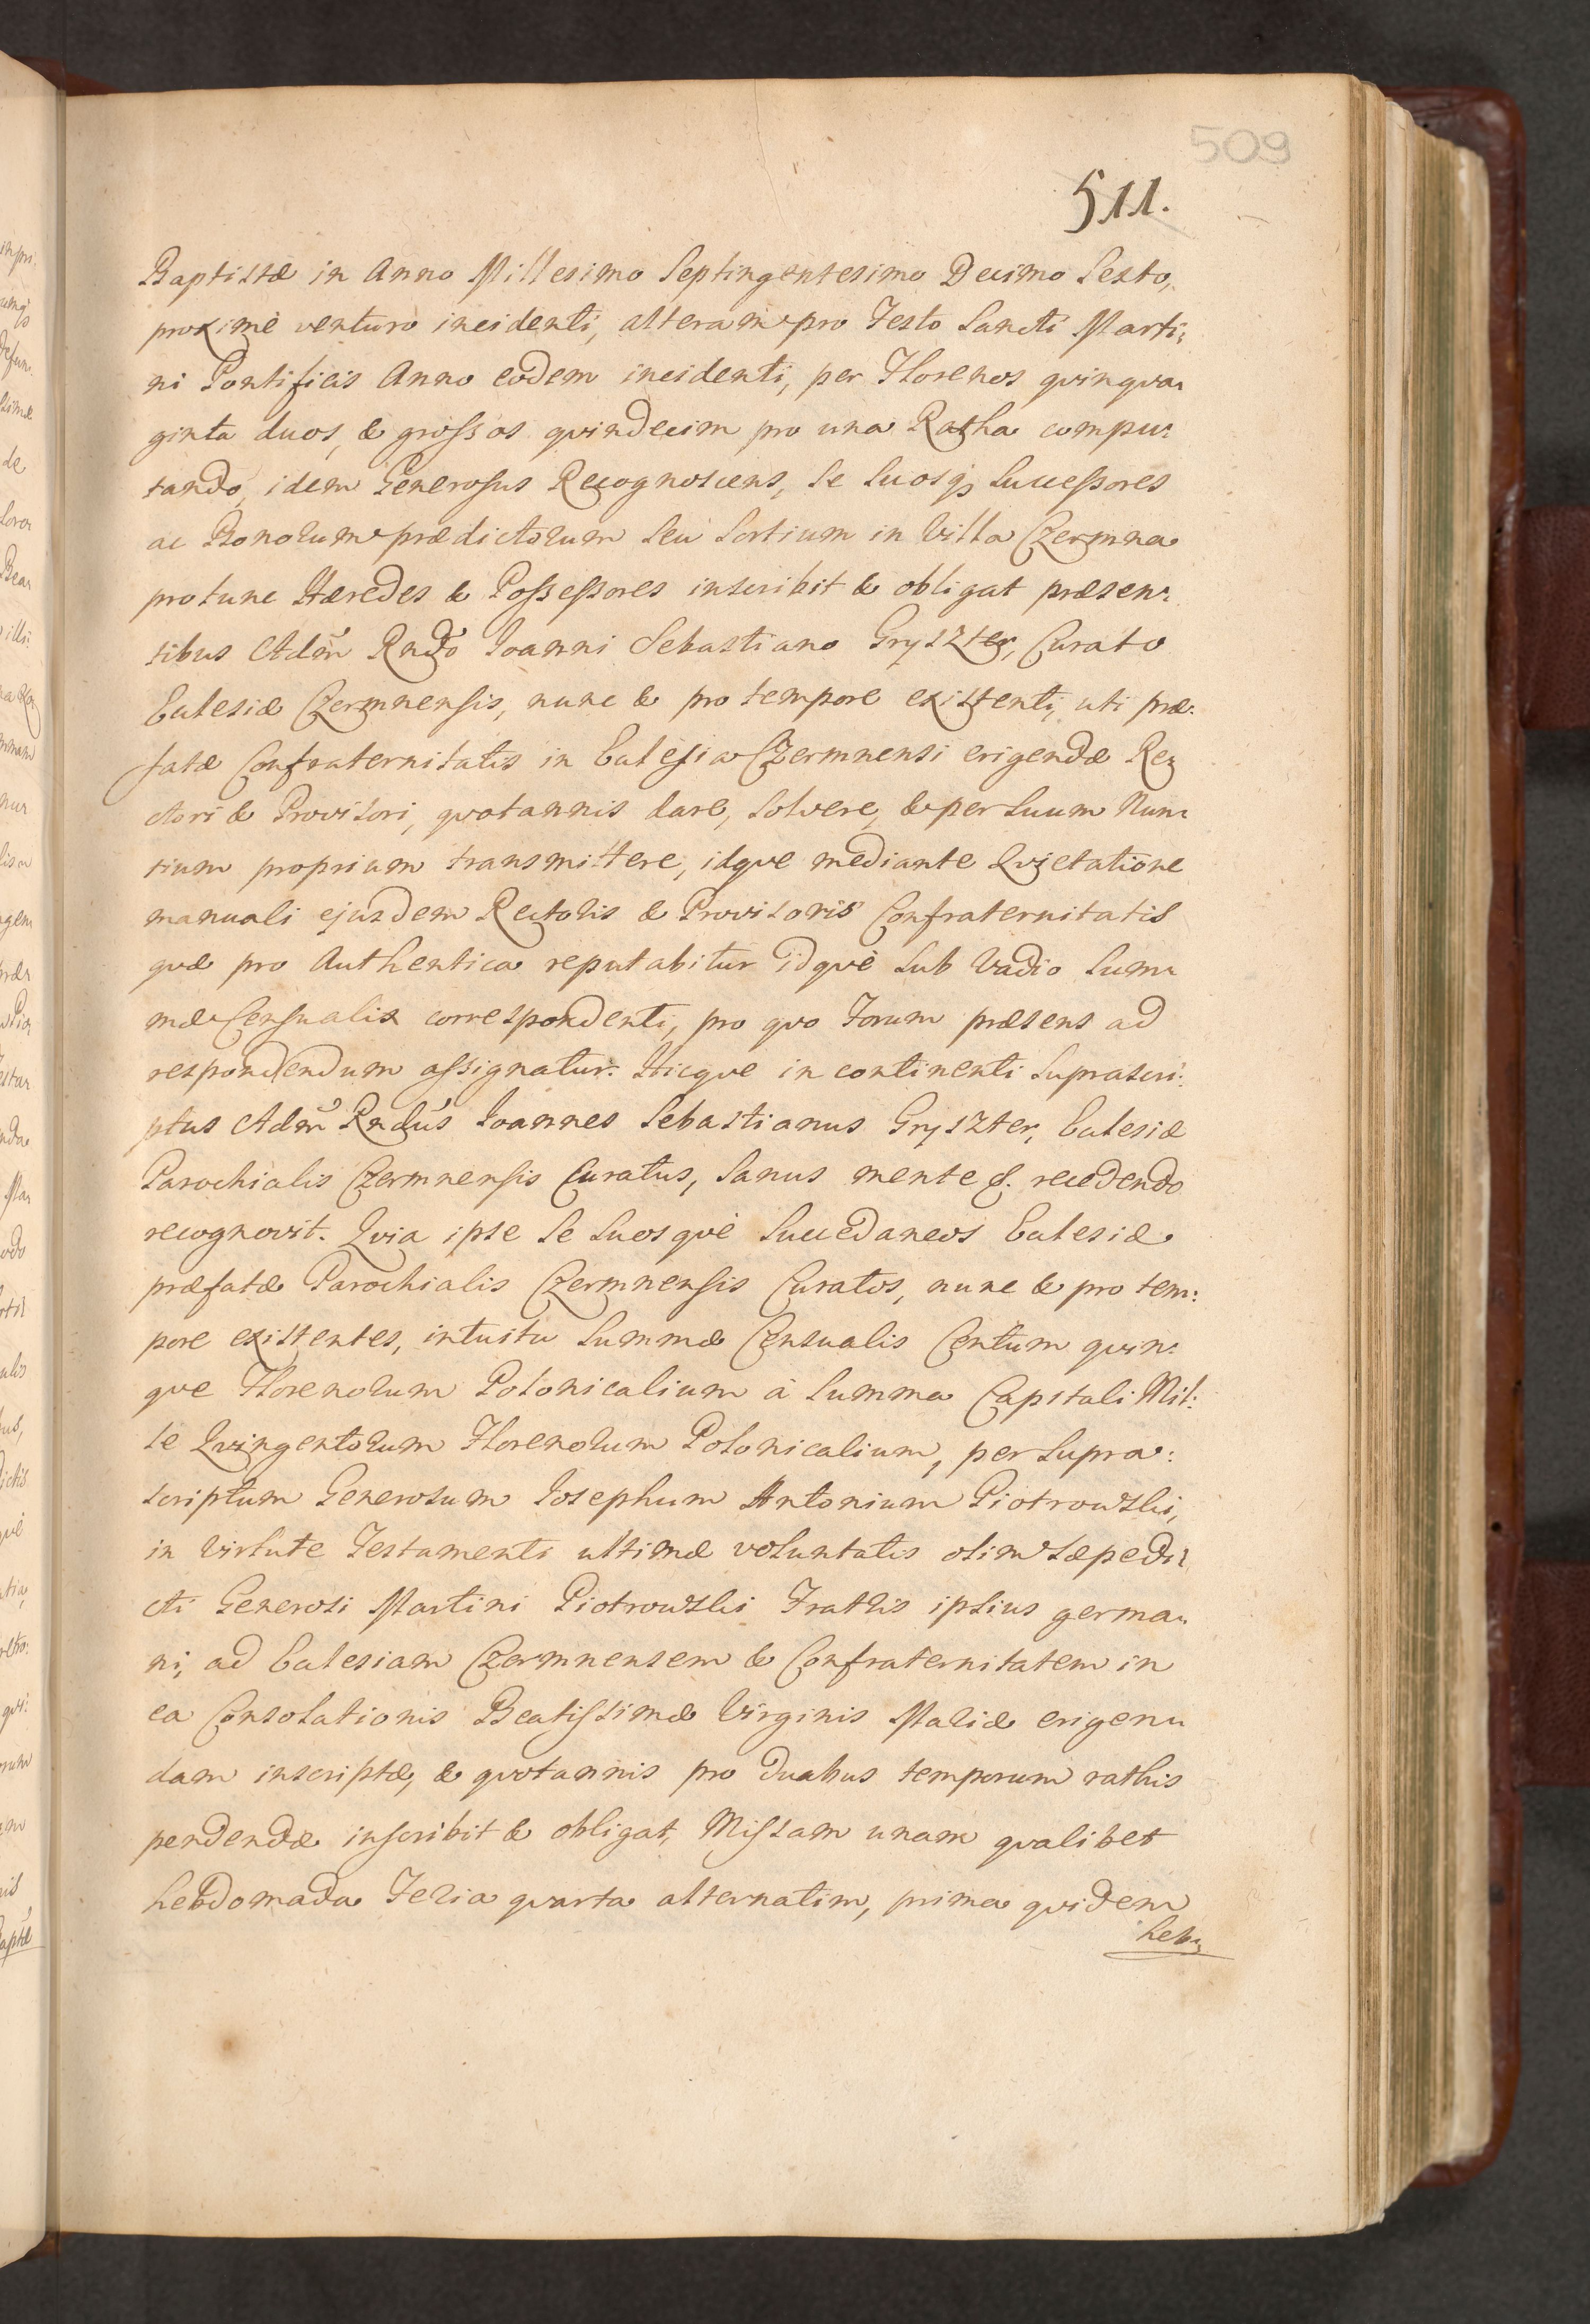 509
511.
Baptistæ in Anno Millesimo Septingentesimo Decimo Sexto,
proximè venturo incidenti, alteram pro Festo Sancti Marti:
ni Pontificis Anno eodem incidenti, per Florenos qvinqva:
ginta duos, & grossos qvindecim pro una Ratha compu:
tando, idem Generosus Recognoscens, se suosq; Successores
ac Bonorum prædictorum seu Sortium in Villa Czermna
protunc Hæredes & Possessores inscribit & obligat præsen:
tibus Adm̃ Rndo Joanni Sebastiano Gryszter, Curato
Eclesiæ Czermnensis, nunc & pro tempore existenti, uti præ:
fatæ Confraternitatis in Eclesia Czermnensi erigendæ Re:
ctori & Provisori, qvotannis dare, solvere, & per suum Nun:
tium proprium transmittere, idqve mediante Qvietatione
manuali ejusdem Rectoris & Provisoris Confraternitatis
qvæ pro Authentica reputabitur idqvè sub Vadio Sum:
mæ Censualis correspondenti, pro qvo Forum præsens ad
respondendum assignatur. Hicqve in continenti suprascri:
ptus Adm̃ Rndus Joannes Sebastianus Gryszter, Eclesiæ
Parochialis Czermnensis Curatus, sanus mente &. recedendo
recognovit. Qvia ipse se suosqvè Succedaneos Eclesiæ
præfatæ Parochialis Czermnensis Curatos, nunc & pro tem:
pore existentes, intuitu Summæ Censualis Centum qvin:
qve Florenorum Polonicalium à Summa Capitali Mil:
le Qvingentorum Florenorum Polonicalium, per supra:
scriptum Generosum Josephum Antonium Piotrowski,
in Virtute Testamenti ultimæ voluntatis olim sæpedi:
cti Generosi Martini Piotrowski Fratris ipsius germa:
ni, ad Eclesiam Czermnensem & Confraternitatem in
ea Consolationis Beatissimæ Virginis Mariæ erigen:
dam inscriptæ, & qvotannis pro duabus temporum rathis
pendendæ inscribit & obligat, Missam unam qvalibet
hebdomada Feria qvarta alternatim, prima qvidem
heb: